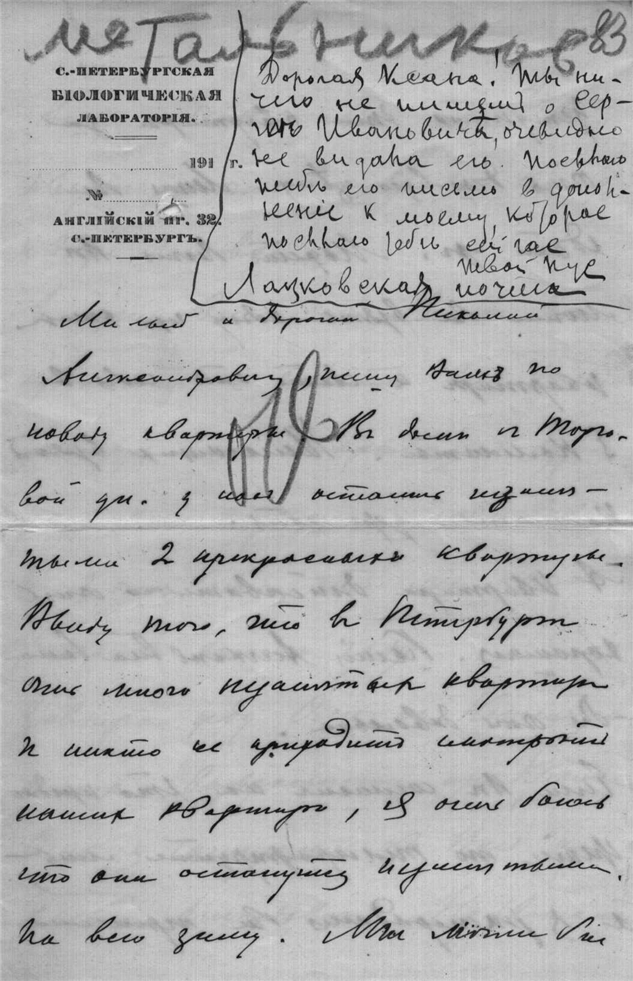 Метальников
83
С.-ПЕТЕРБУРГСКАЯ
БІОЛОГИЧЕСКАЯ
ЛАБОРАТОРІЯ.
191 г.
№
АНГЛІЙСКІЙ пр. 32.
С.-ПЕТЕРБУРГЪ.
Дорогая Ксана! Ты ни-
чего не пишешь о Сер-
гѣѣ Ивановичѣ, очевидно
не видала его. Посылаю
тебѣ его письмо в допол-
неніе к моему, которое
посылаю тебѣ сейчас
твой
Лацковская
Милый и дорогой Николай
Александрович, пишу Вамъ по
поводу квартиры. Въ домѣ и Торго-
вой ул. у нас остались незаня-
тыми 2 прекрасныя квартиры.
Ввиду того, что в Петербургѣ
очень много незанятых квартир
и никто не приходитъ смотрѣть
наших квартир, я очень боюсь
что они останутся незанятыми
на всю зиму. Мы могли бы